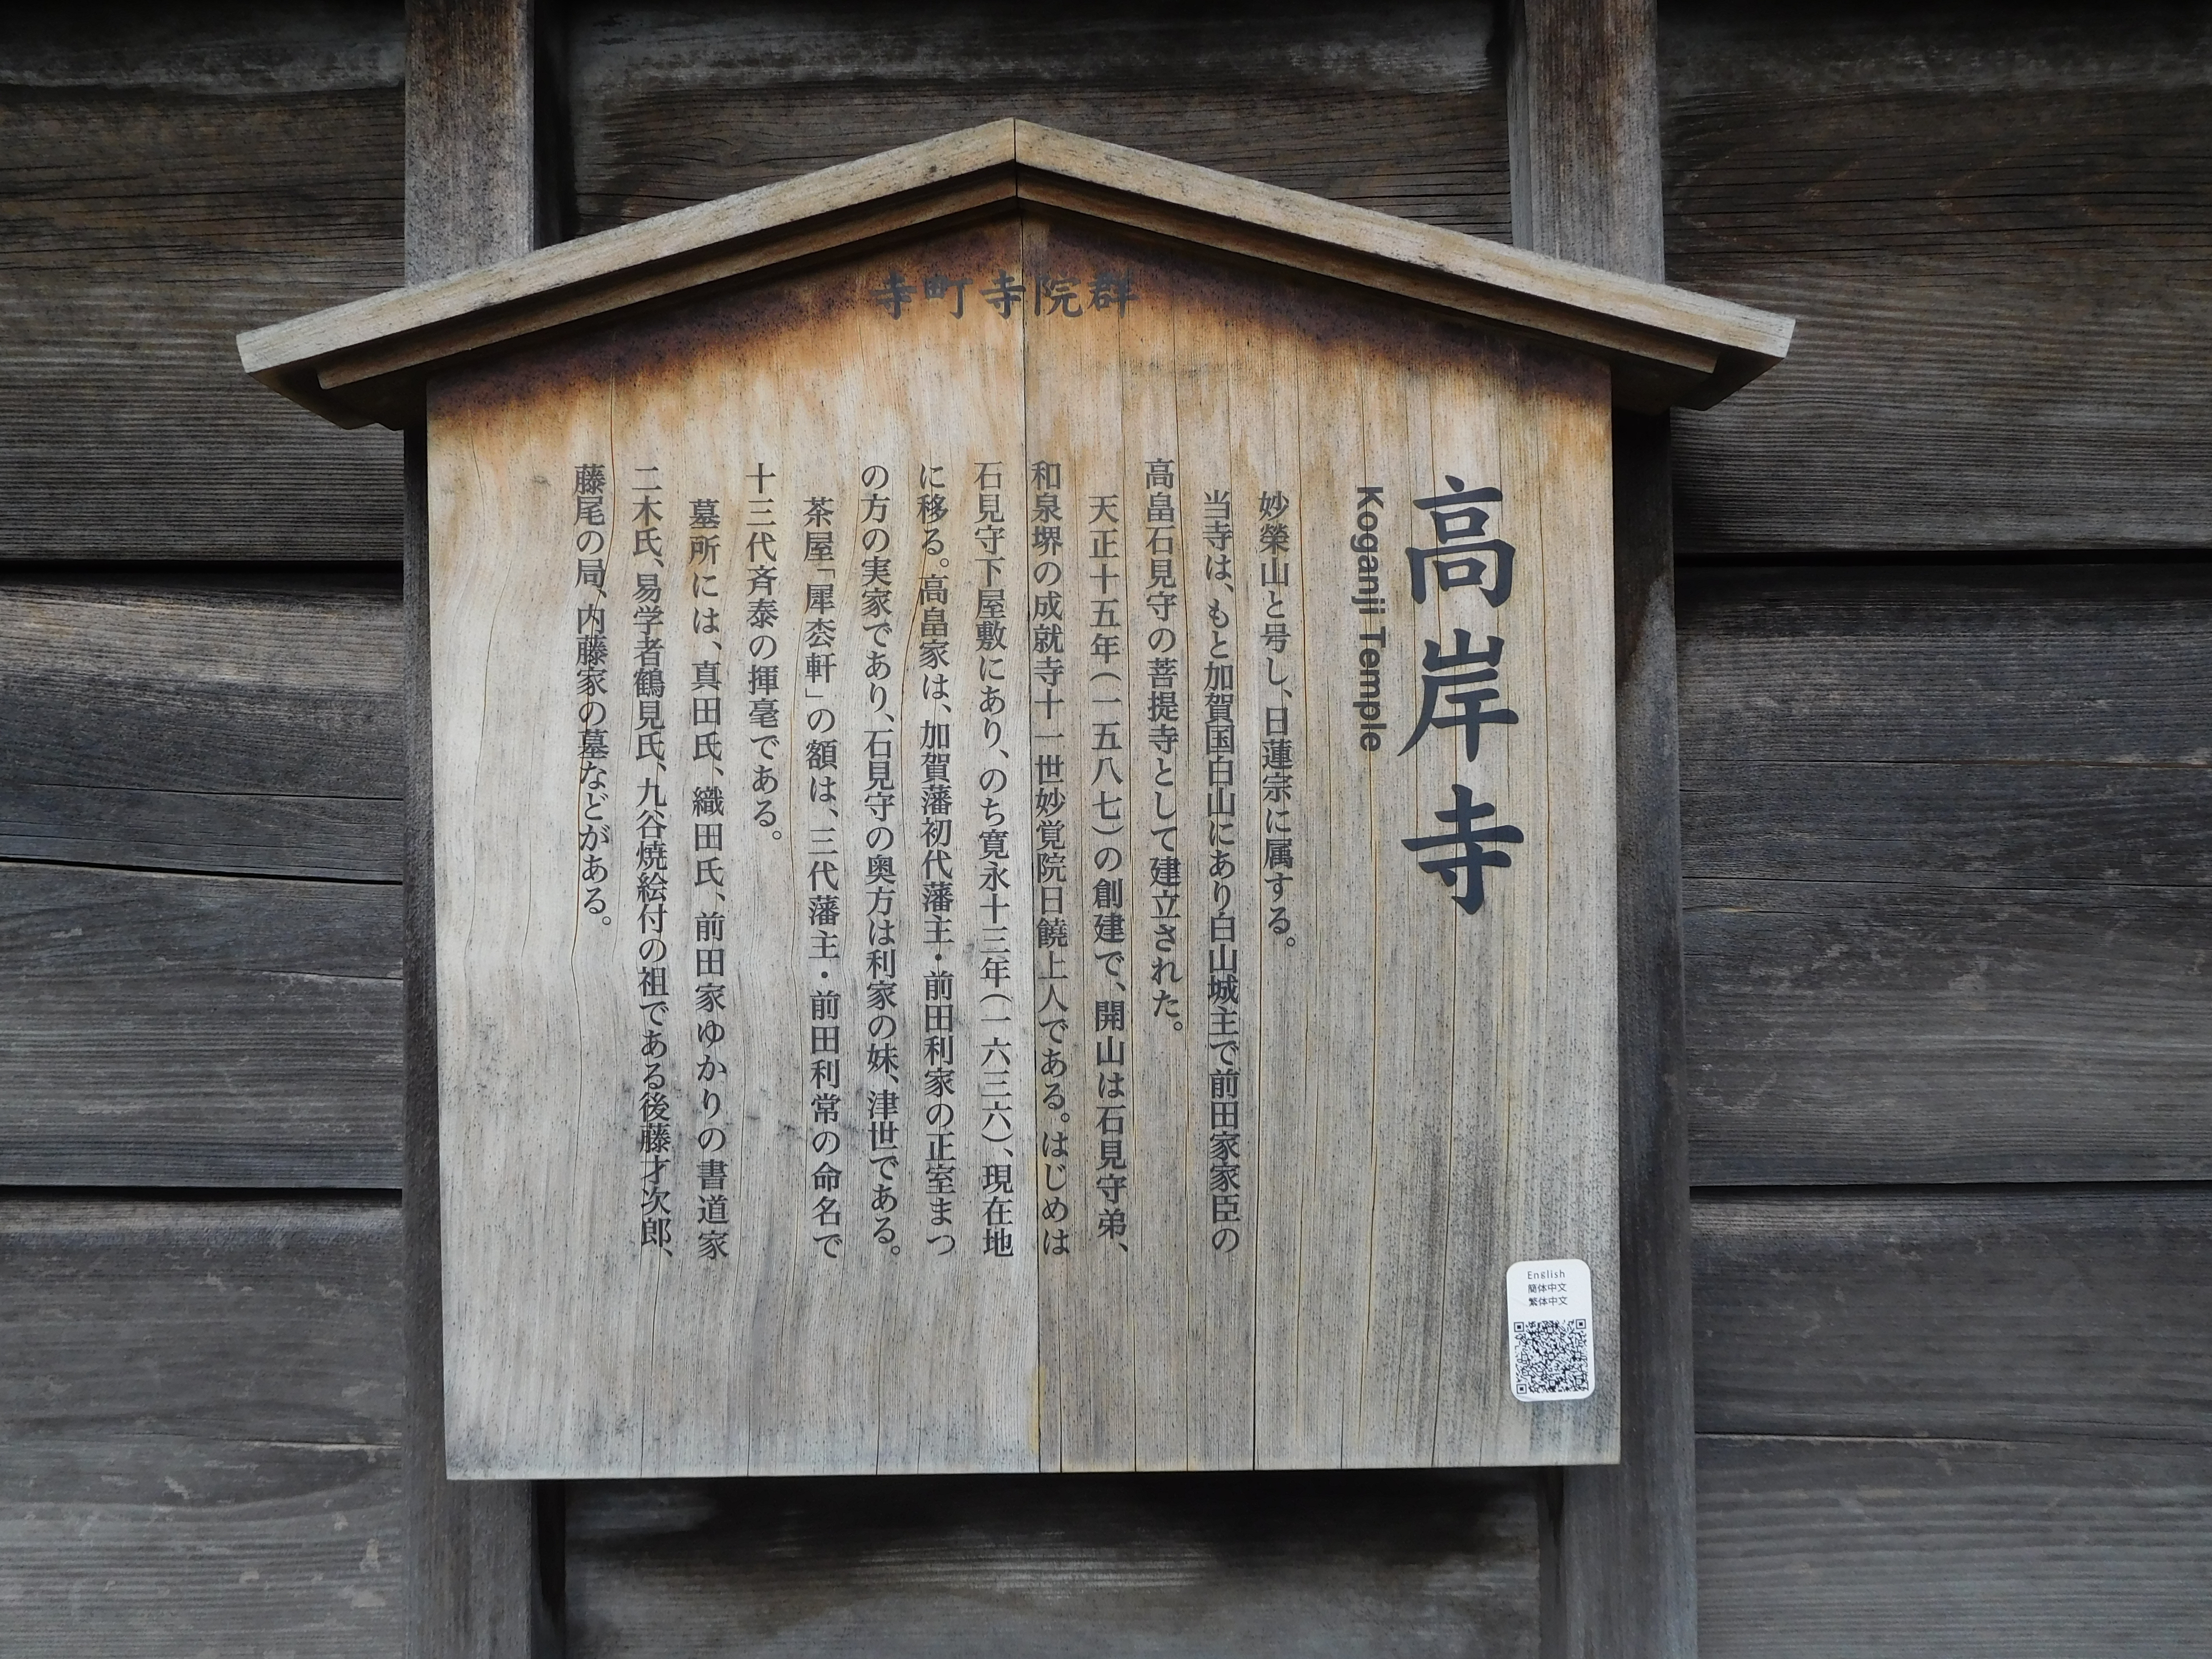 寺町寺院群
高岸寺
Koganji Temple
妙榮山と号し、日蓮宗に属する。
当寺は、もと加賀国白山にあり白山城主で前田家家臣の
高畠石見守の菩提寺として建立された。
天正十五年(一五八七)の創建で、開山は石見守弟、
和泉堺の成就寺十一世妙覚院日饒上人である。はじめは
石見守下屋敷にあり、のち寛永十三年(一六三六)、現在地
に移る。高畠家は、加賀藩初代藩主・前田利家の正室まつ
の方の実家であり、石見守の奥方は利家の妹、津世である。
茶屋「犀枩軒」の額は、三代藩主・前田利常の命名で
十三代斉泰の揮毫である。
墓所には、真田氏、織田氏、前田家ゆかりの書道家
二木氏、易学者鶴見氏、九谷焼絵付の祖である後藤才次郎、
藤尾の局、内藤家の墓などがある。
English
簡体中文
繁体中文